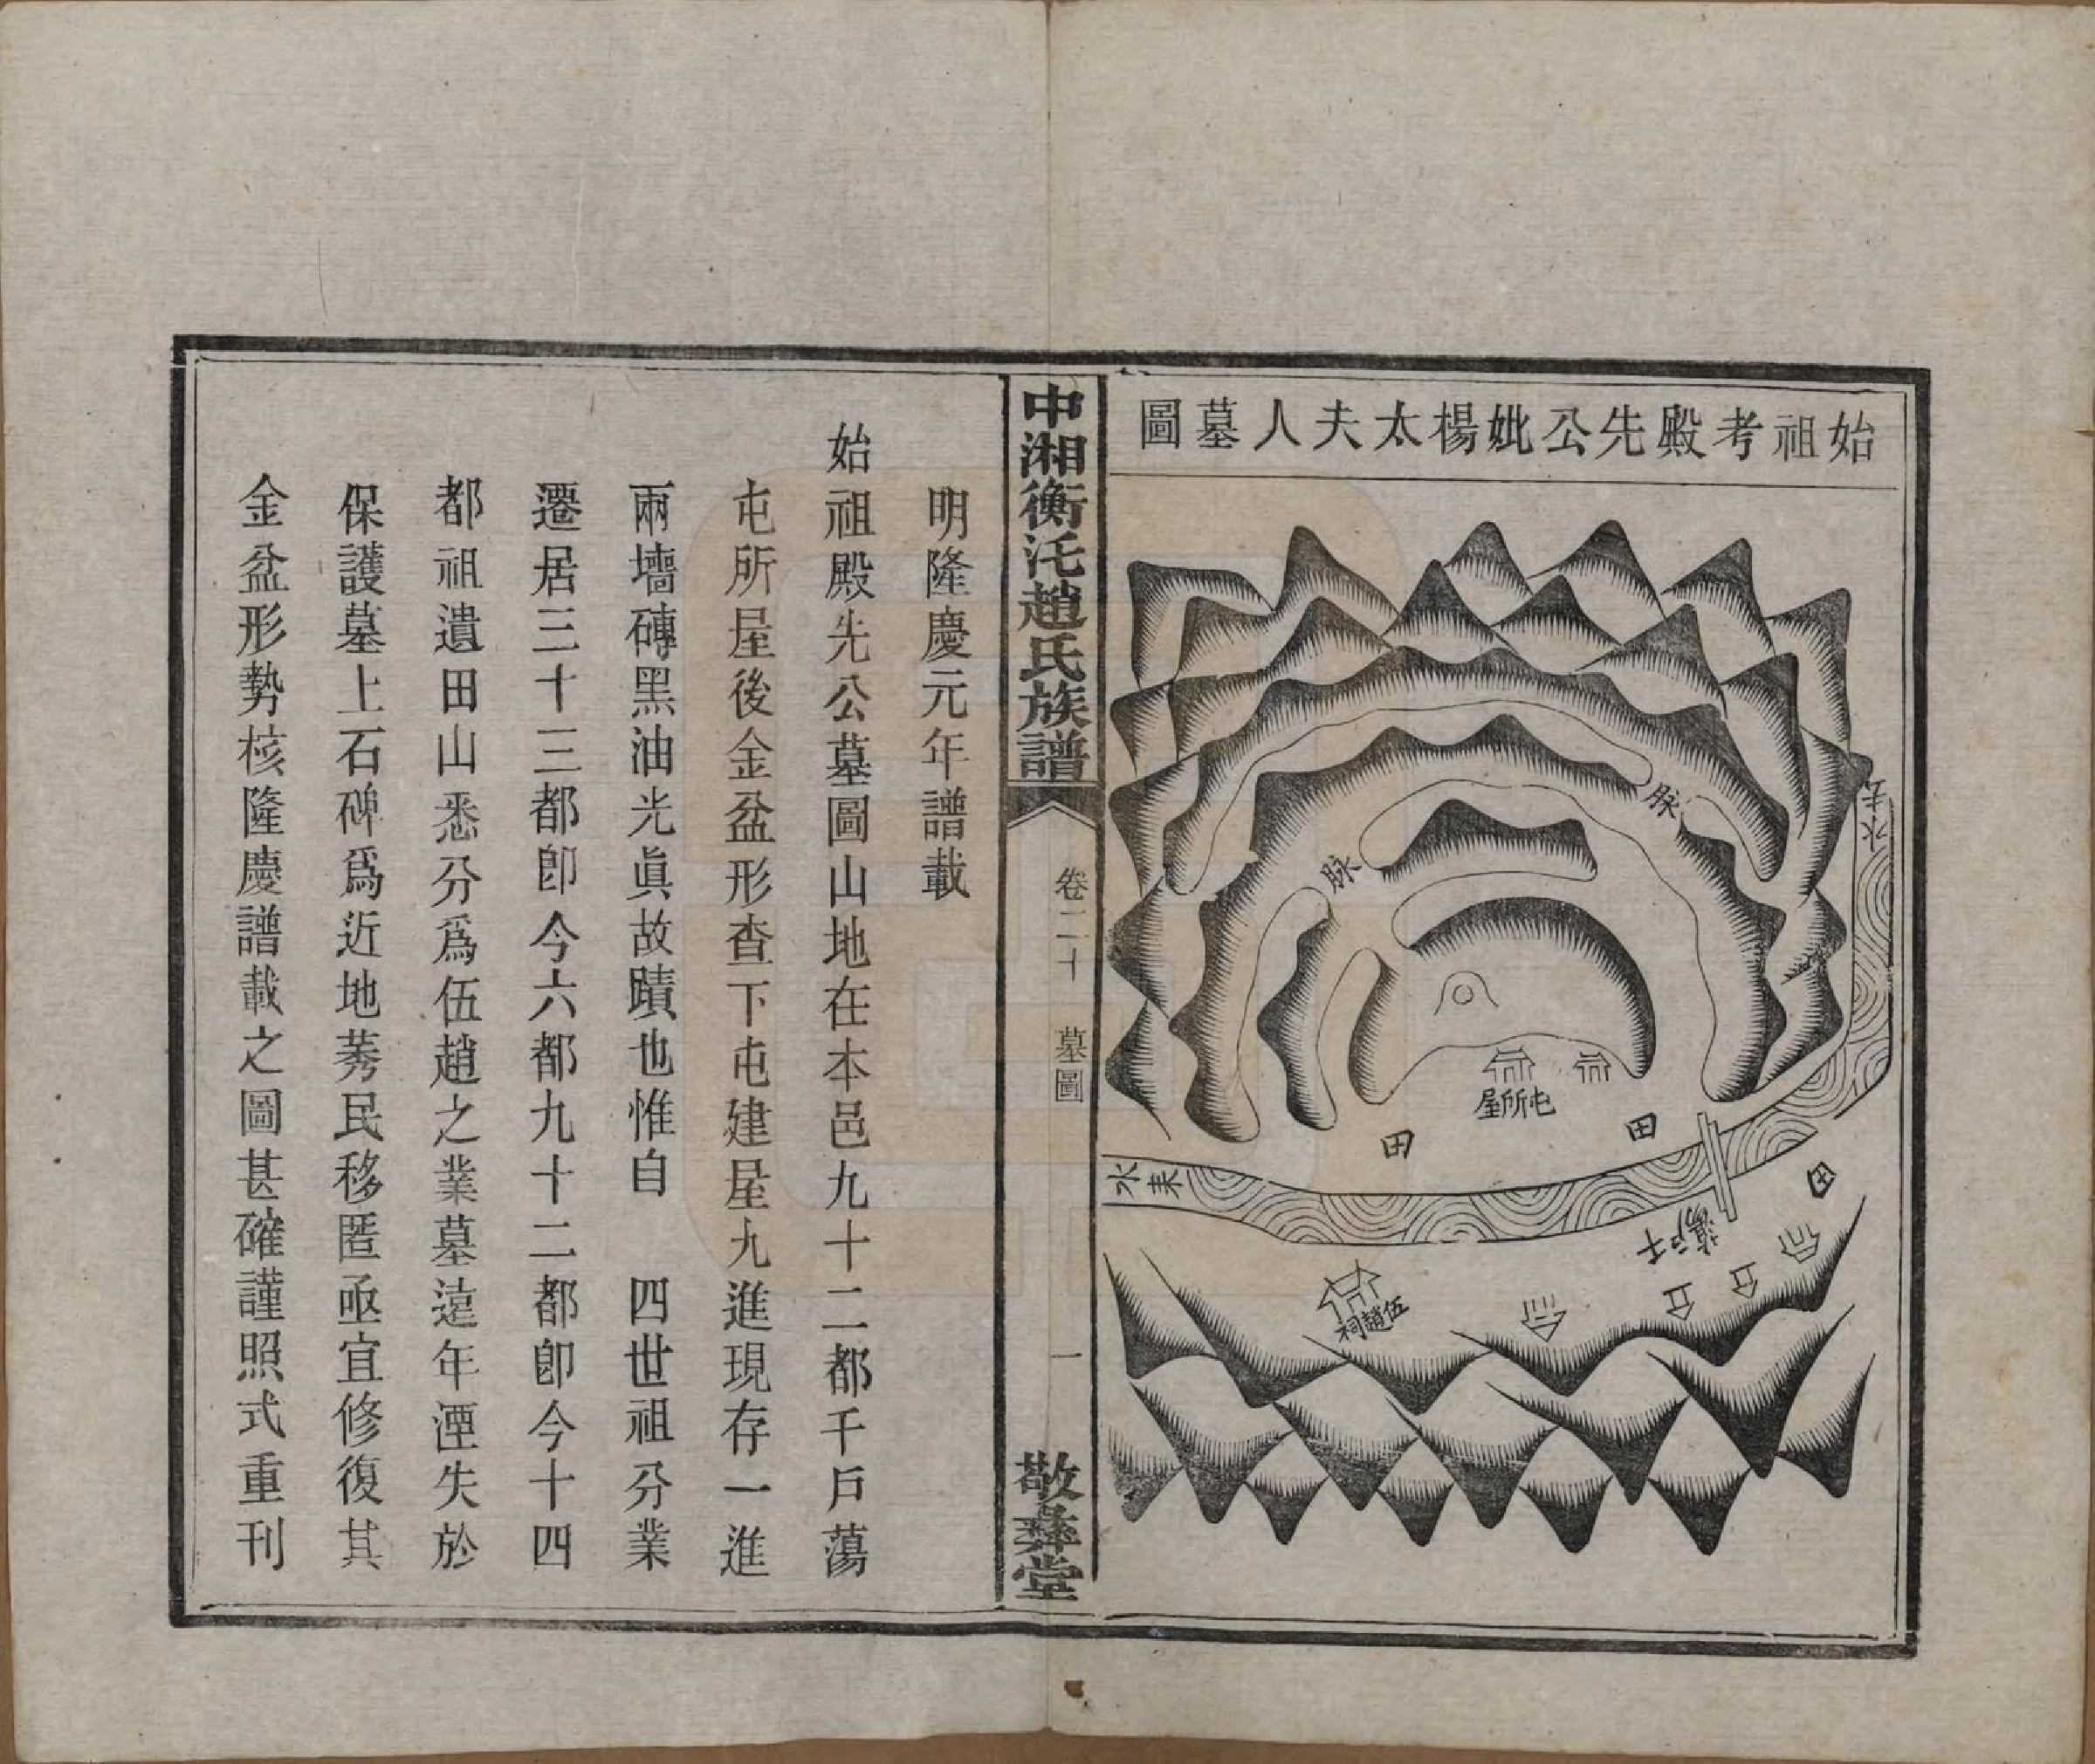 始祖考殿先公妣楊太夫人墓圖
水去
脉
脉
屯所屋
田
田
田
水來
千户蕩
伍趙祠
中湘衡汑趙氏族譜
卷二十
墓圖
一
敬彝堂
明隆慶元年譜載
始祖殿先公墓圖山地在本邑九十二都千户蕩
屯所屋後金盆形查下屯建屋九進現存一進
兩墻磚黑油光眞故蹟也惟自 四世祖分業
遷居三十三都卽今六都九十二都卽今十四
都祖遺田山悉分爲伍趙之業墓遠年湮失於
保護墓上石碑爲近地莠民移匿亟宜修復其
金盆形勢核隆慶譜載之圖甚確謹照式重刊